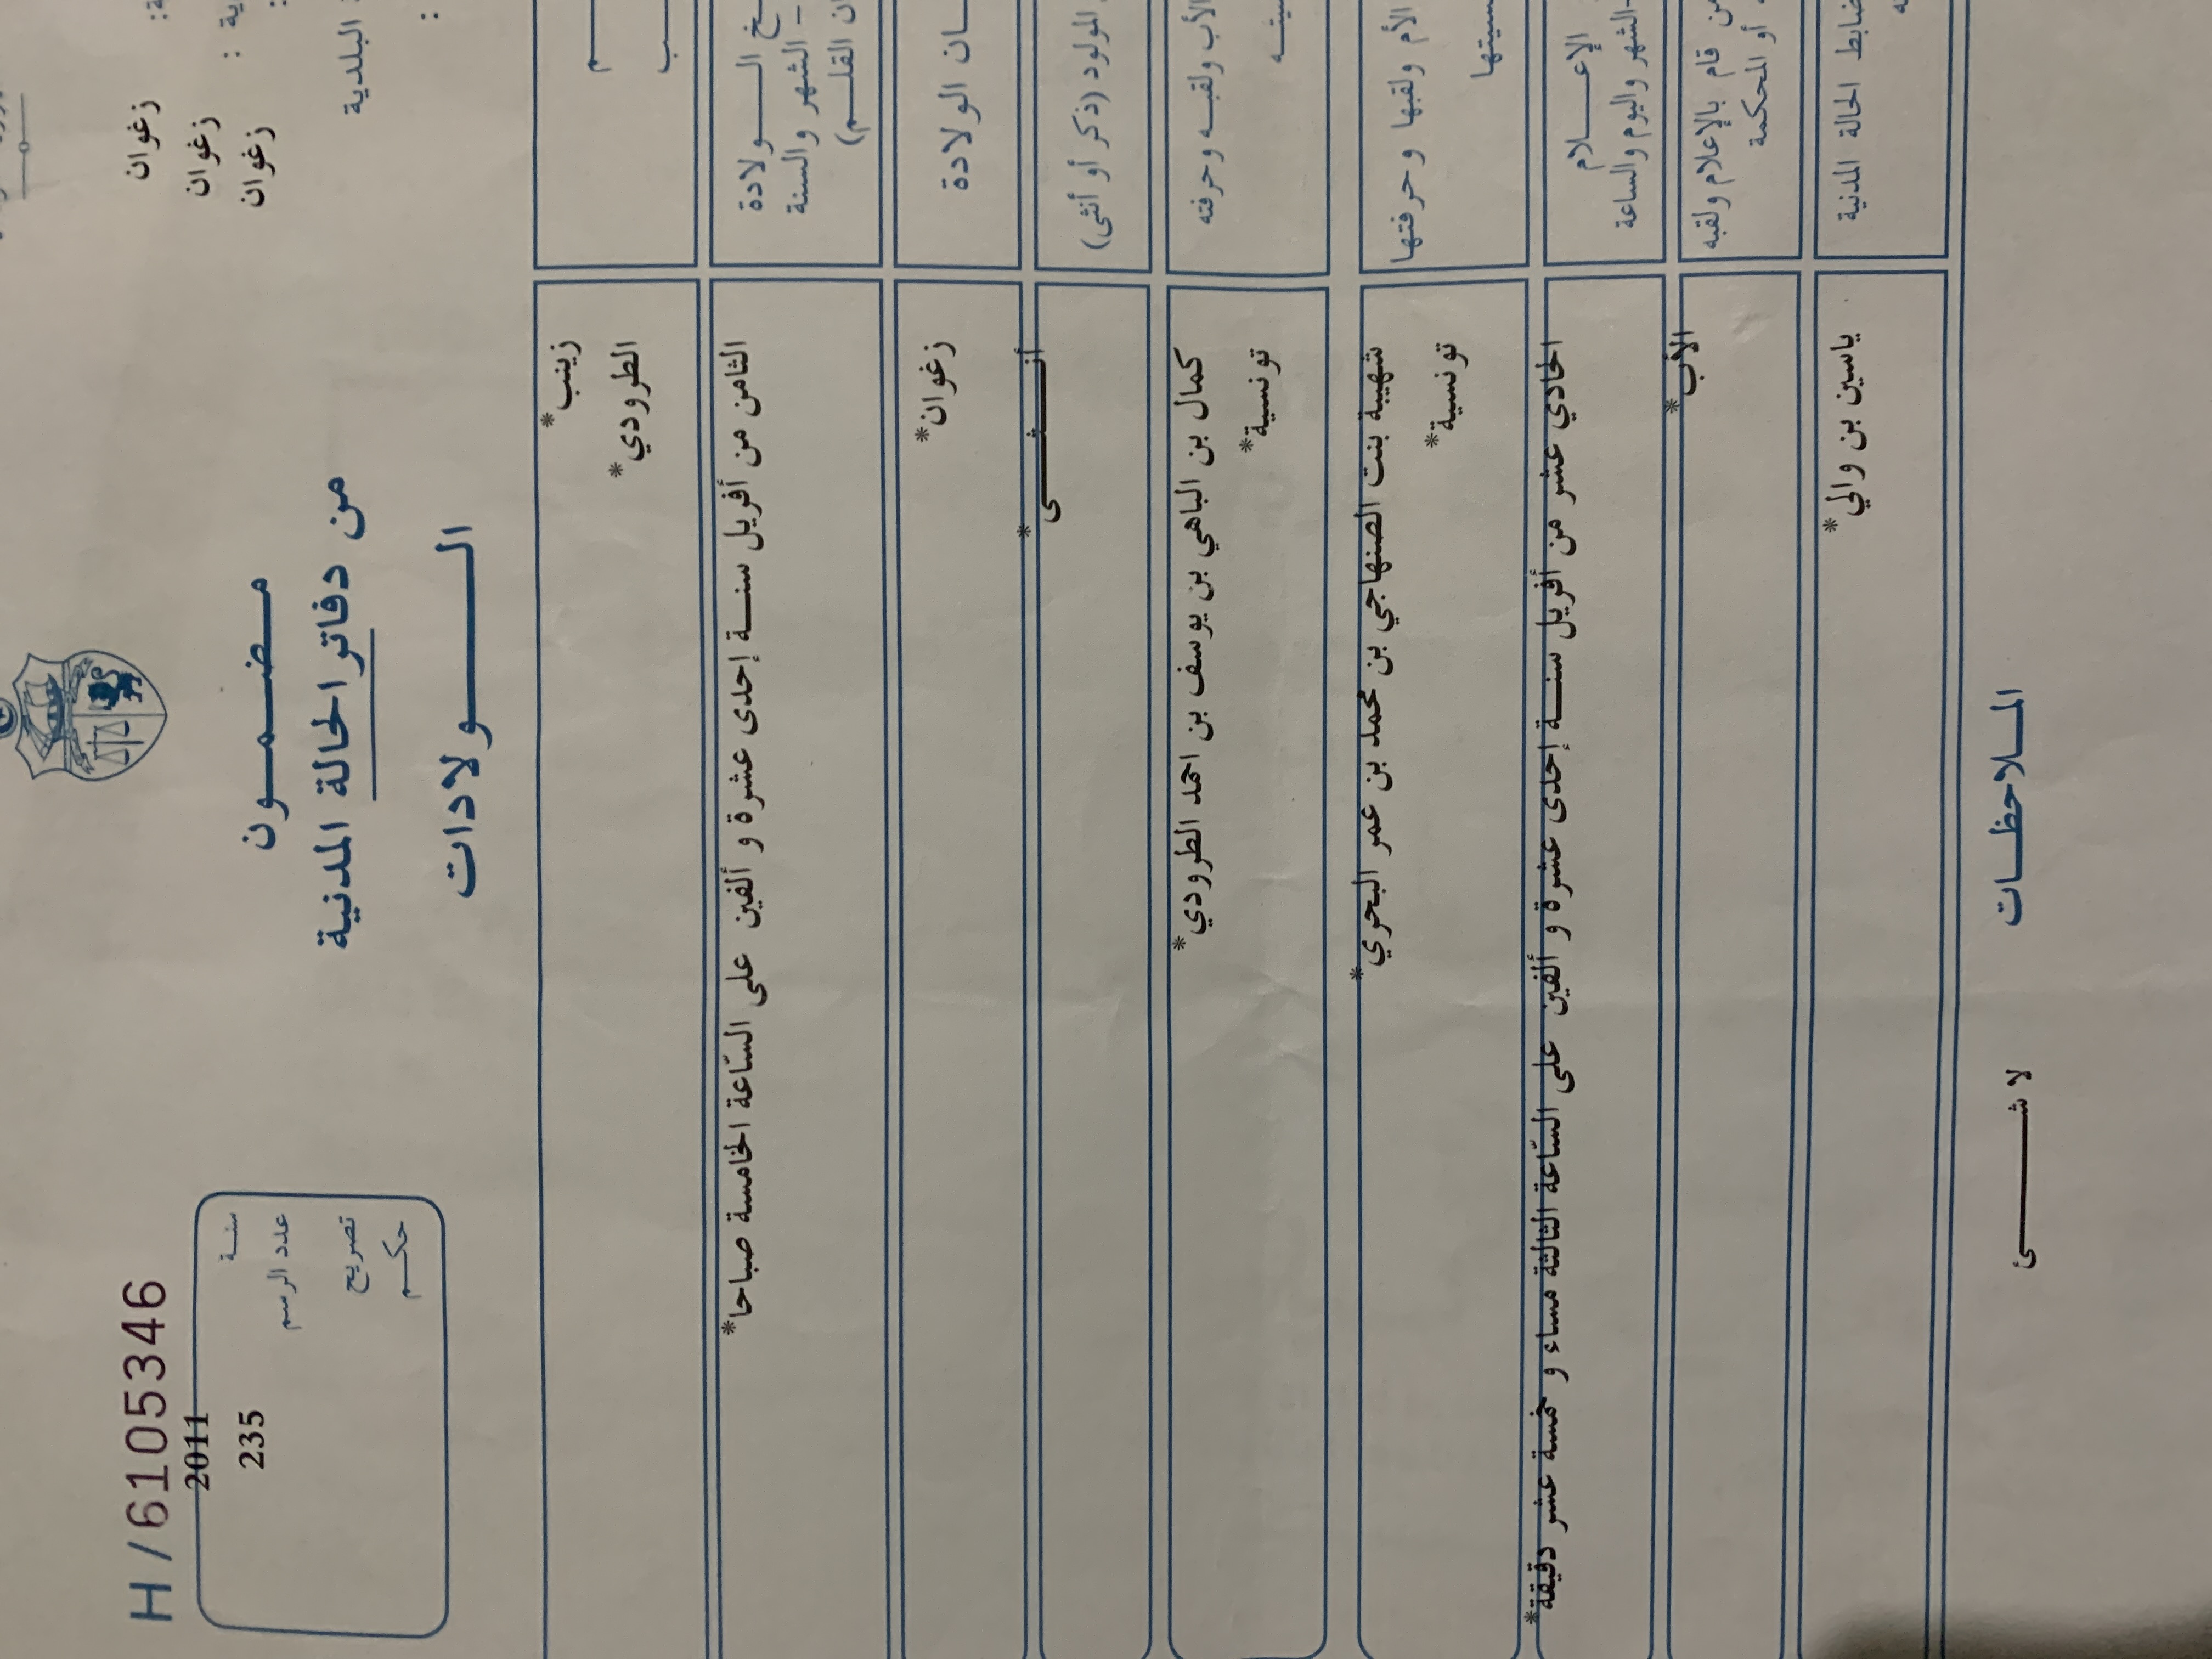 زغوان
زغوان
زغوان
البلدية
H/6105346
سنة 2011
عدد الرسم 235
تصريح
حكم
مضمون
من دفاتر الحالة المدنية
الولادات
زينب*
الطرودي*
الولادة
الشهر والسنة
القلم)
الثامن من أفريل سنة إحدى عشرة و ألفين على السّاعة الخامسة صباحا*
الولادة
زغوان*
المولود (ذكر أو أنثى)
أنثى*
الأب ولقبه وحرفته
كمال بن الباهي بن يوسف بن احمد الطرودي*
تونسية*
الأم ولقبها وحرفتها
شهيبة بنت الصنهاجي بن محمد بن عمر البحري*
تونسية*
الإعلام
الشهر واليوم والساعة
الحادي عشر من أفريل سنة إحدى عشرة و ألفين على السّاعة الثالثة مساء و خمسة عشر دقيقة*
من قام بالإعلام ولقبه
أو المحكمة
الأب*
ضابط الحالة المدنية
ياسين بن والي*
الملاحظات
لا شئ